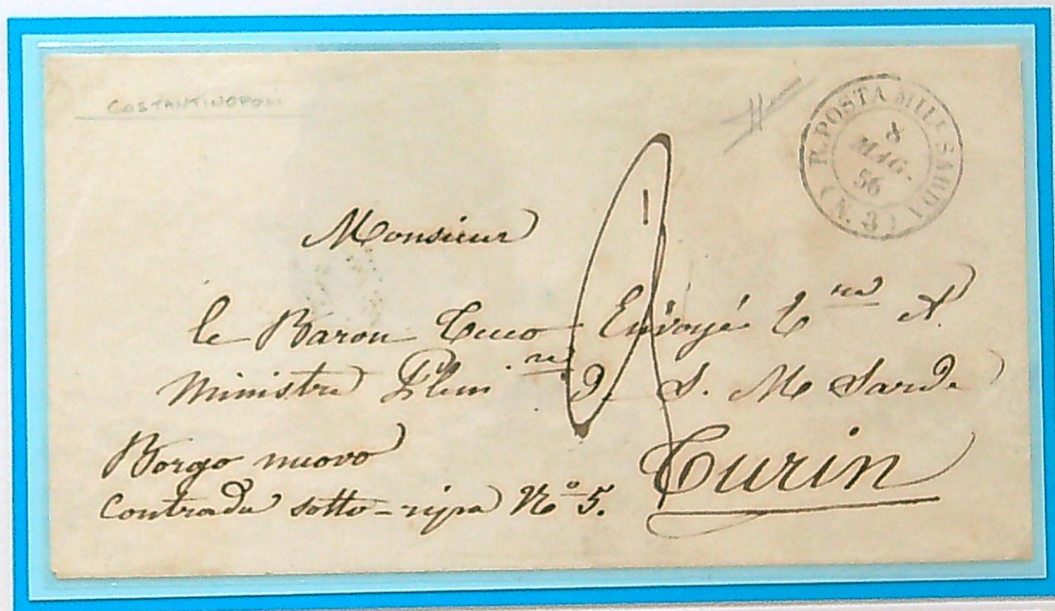 COSTANTINOPOLI
R. POSTA MIL. SARDA
8
MAG.
56
(N. 3)
Monsieur
le Baron Tecco Envoyé E.re &
Ministre Plen.re d. S. M. Sarde
Turin
Borgo nuovo
Contrada sotto-ripa N.o 5.